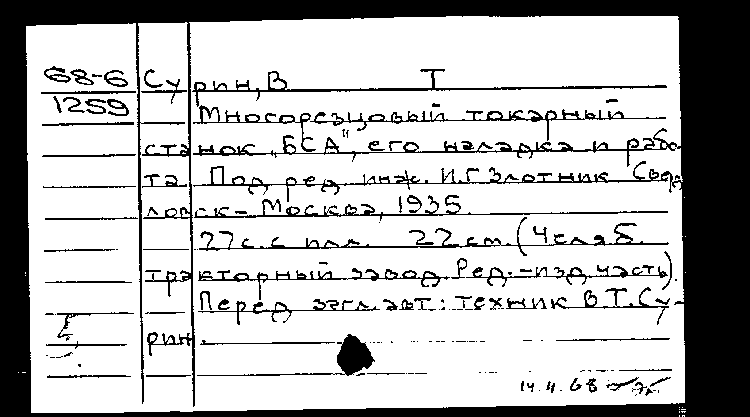 68-6 Сурин, В Т
1259 Многорезцовый токарный
станок „БСА", его наладка и рабо-
та. Под ред. инж. И.Г Злотник Сверд
ловск-Москва, 1935.
27 с. с илл. 22 см. (Челяб.
тракторный завод. Ред.-изд. часть).
Перед загл. авт: техник В.Т. Су-
рин.
14.4.68